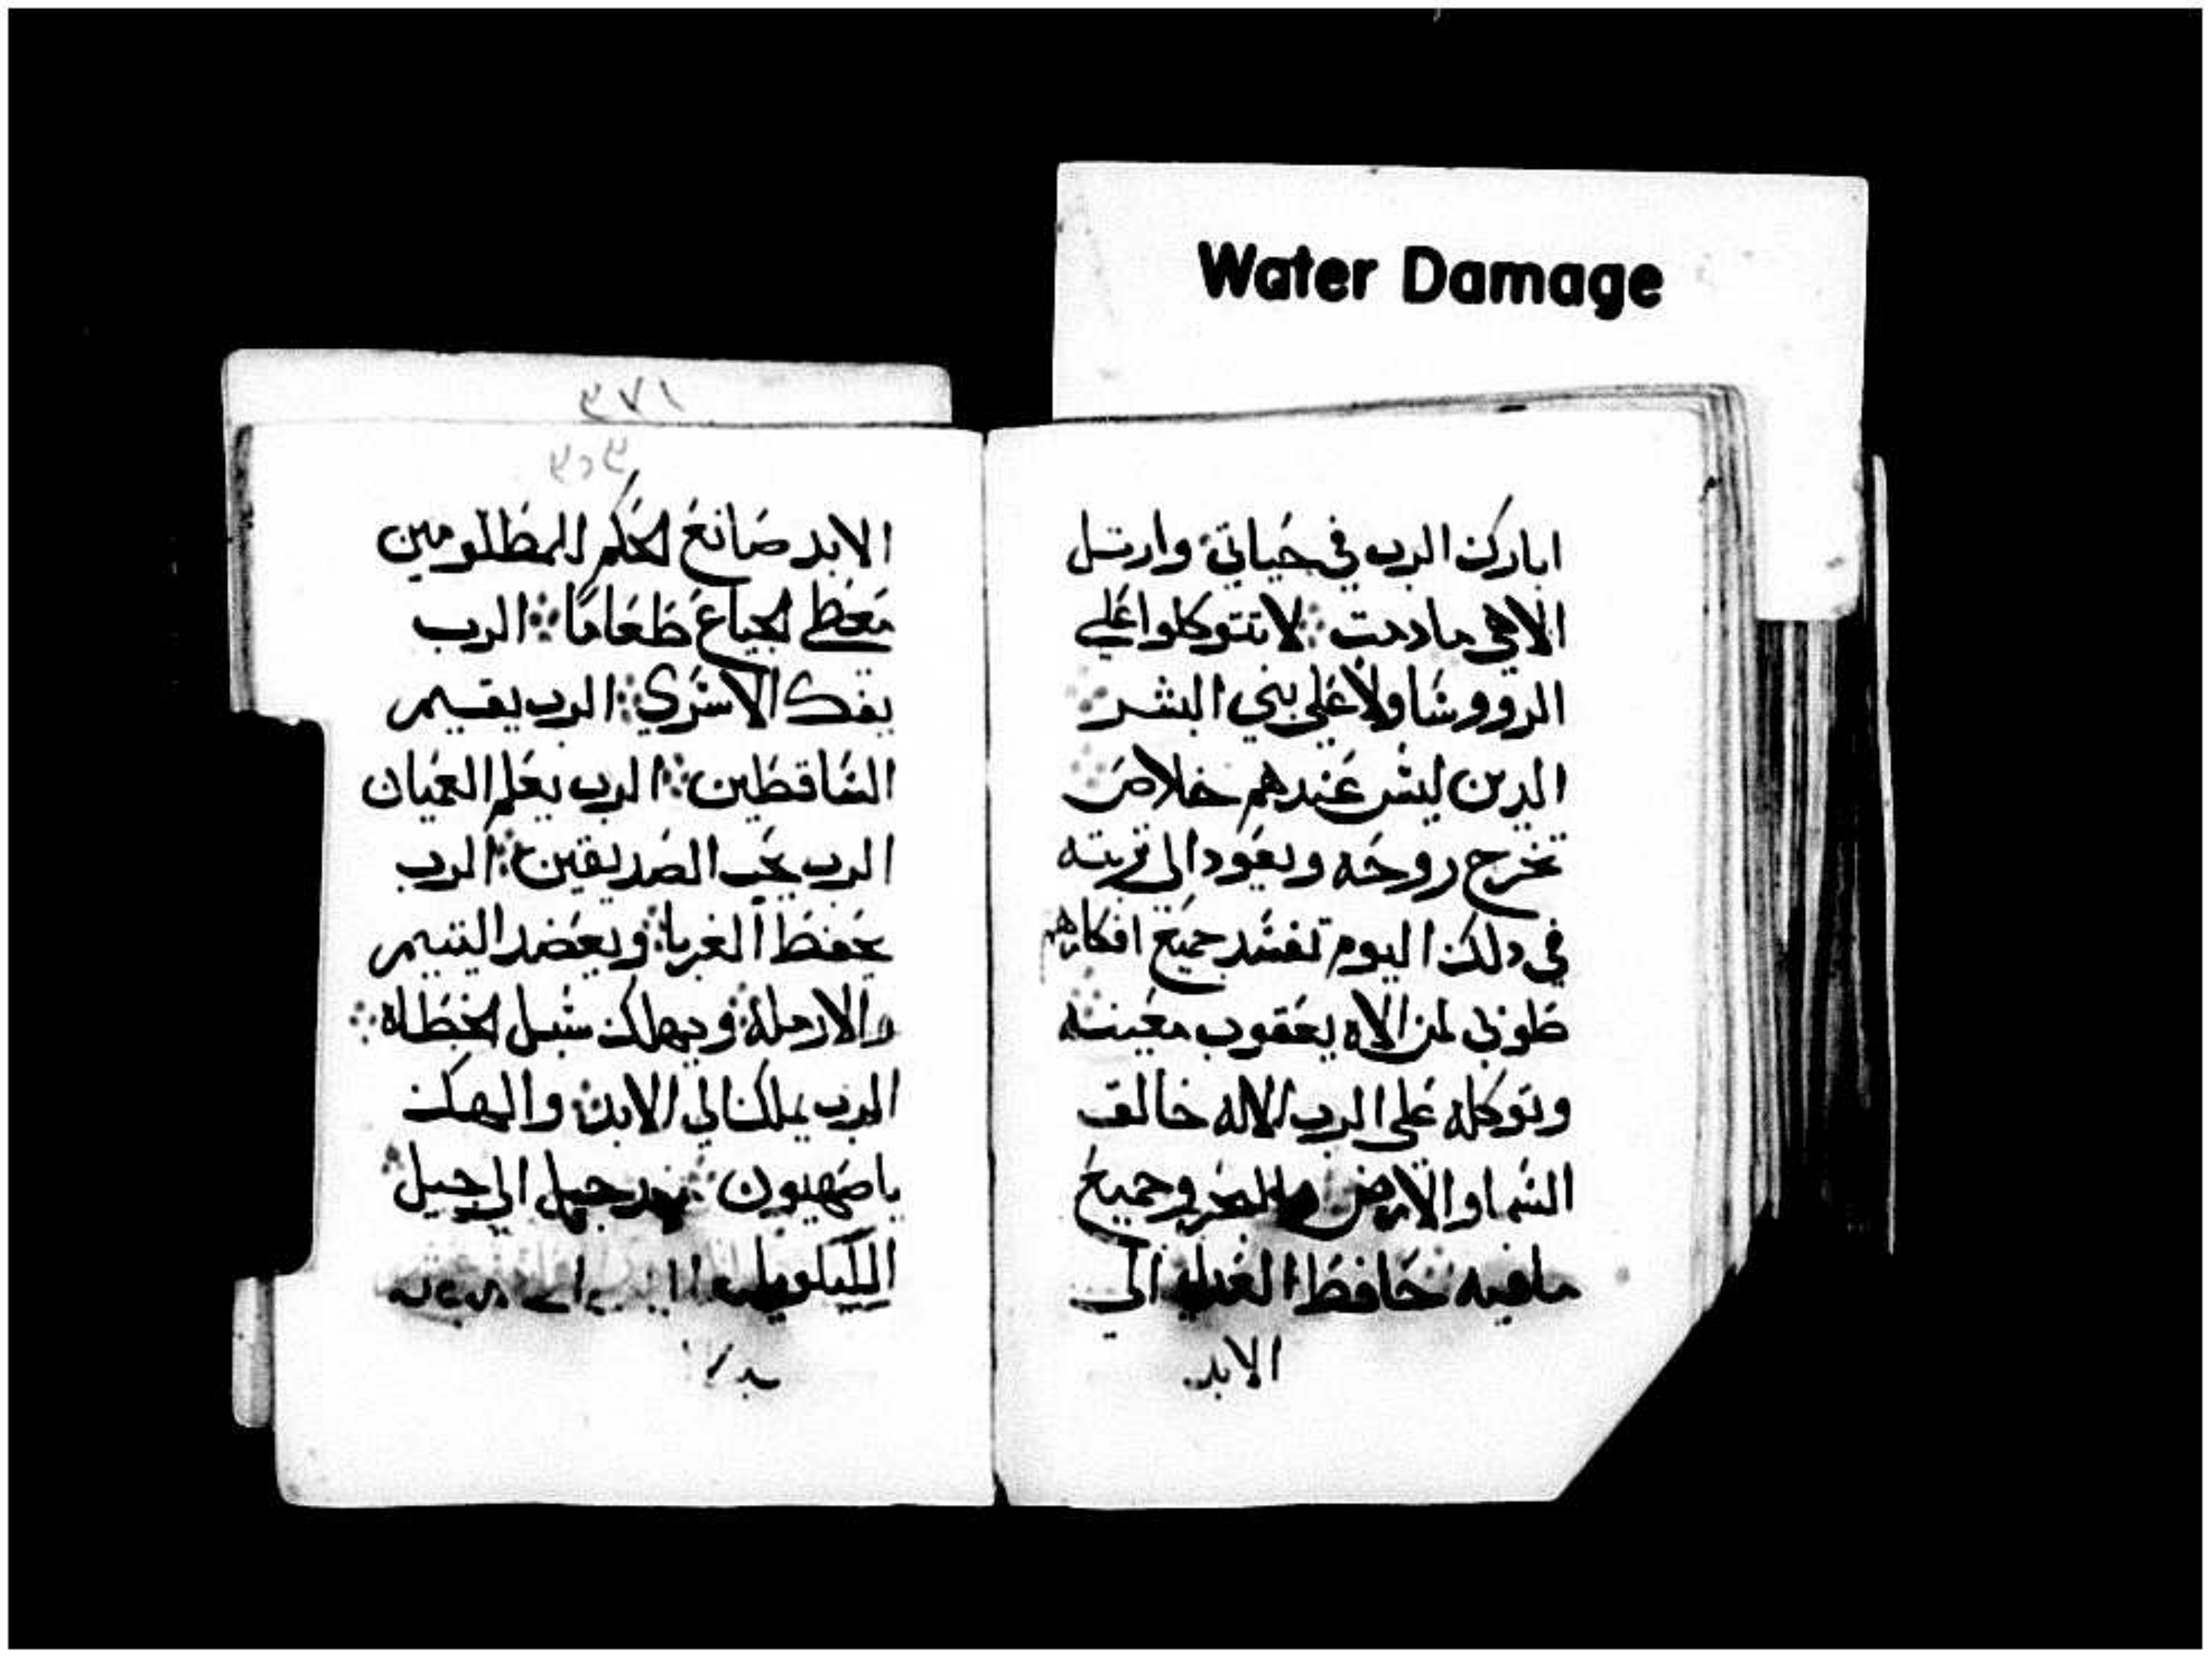 Water Damage
ابارك الرب في حياتي وارتل
الاهي مادمت ܀ لا تتوكلوا علي
الرووسا ولا علي بني البشر ܀
الدين ليس عندهم خلاص ܀
تخرج روحه ويعود الي تربته
في دلك اليوم تفسد جميع افكارهم
طوبي لمن الاه يعقوب معينه ܀
وتوكله علي الرب الاله خالق
السما والارض والبحر وجميع
مافيه ܀ حافظ العدل الي
الابد
٣٧١
٣٥٣
الابد صانع الحكم للمظلومين
معطي الجياع طعاما ܀ الرب
يفك الاسري ܀ الرب يقيم
الساقطين ܀ الرب يعلم العميان
الرب يحب الصديقين ܀ الرب
يحفظ الغربا ܀ ويعضد اليتيم
والارملة ܀ ويهلك سبل الخطاه ܀
الرب يملك الي الابد ܀ والهك
ياصهيون ܀ جيل الي جيل
الليلويا